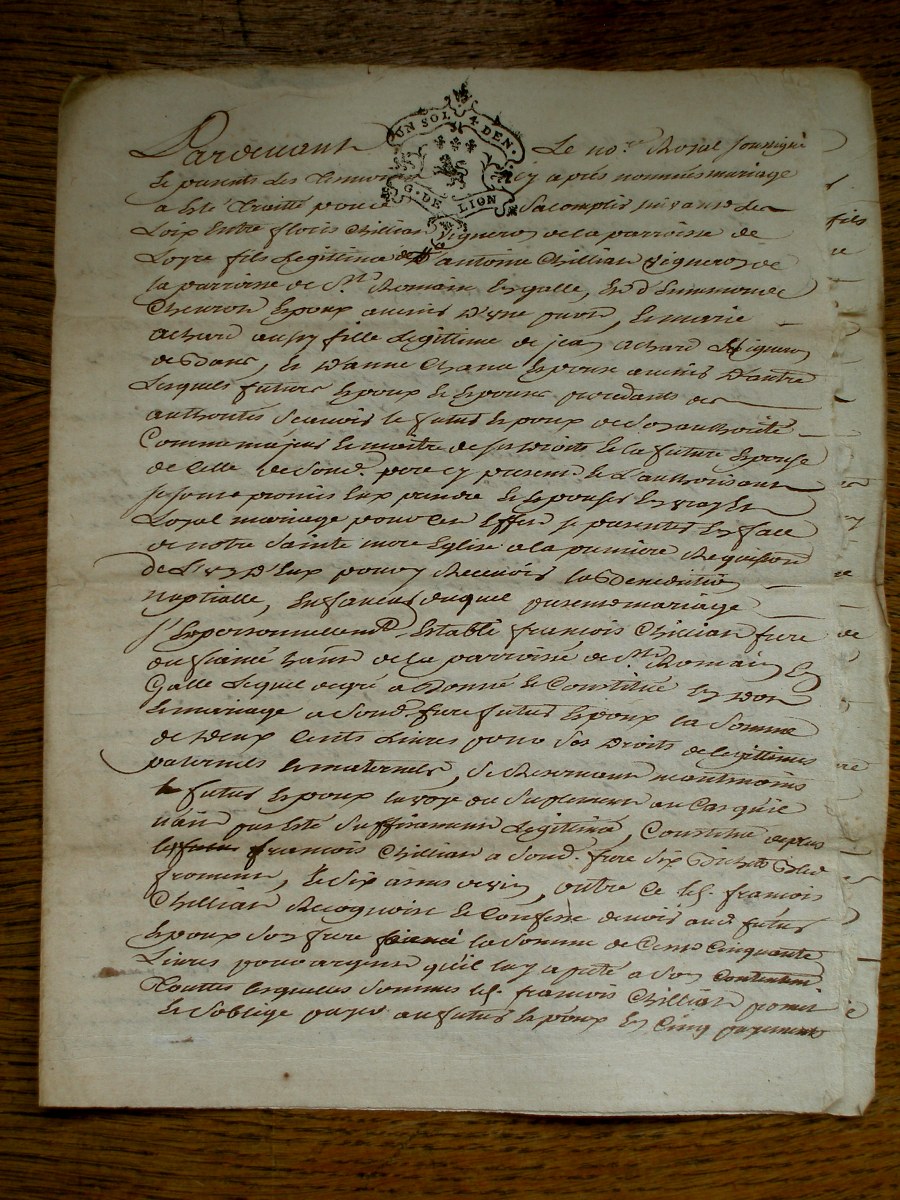 UN SOL 4 DEN.
G. DE LION
Pardevant Le no.re Royal soussigné
Et presents Les temoins cy apres nommés mariage
a esté traitté pour sacomplir suivant Les
Loix Entre floris Chillian Vigneron de la parroisse de
Loyre fils Legitime de antoine Chillian Vigneron de
la parroisse de St Romain En galle, Et d'
Epoux avenir D'une part, Et marie
achard aussy fille Legittime de jean achard Vigneron
Et D'anne Epouse avenir D'autre
Lesquels futurs Epoux Et Epouse procedants des
authorités scavoir le futur Epoux de son authorité
Comme majeur Et maitre de ses droits Et la future Epouse
de Celle de Sond. pere cy present Et L'authorisant
se sont promis Eux prendre Et Epouser En vray Et
Loyal mariage pour Cet Effet se presenter En face
de notre Sainte mere Eglise a la premiere Requisition
de L'un D'Eux pour y Recevoir la Benediction
Nuptialle, En faveur duquel present mariage
s'Est personnellement Establi francois Chillian frere
de la parroisse de St Romain En
Galle Lequel de gré a Donné Et Constitué En Dot
Et mariage a Sond. frere futur Epoux la Somme
de Deux Cents Livres pour Ses Droits de Legittimes
paternels Et maternels, Se Reservant neantmoins
le futur Epoux la voye du Suplement au Cas qu'il
n'ait pas Esté Suffisament Legittimé, Constitue de plus
francois Chillian a Sond. frere Six Bichets Bled
froment, Et Six asnés de vin, outre Ce led. francois
Chillian Recognoit Et Confesse devoir aud. futur
Epoux Son frere la Somme de Cent Cinquante
Livres pour argent qu'il luy a preté a Son Contentement
Touttes Lesquelles Sommes led. francois Chillian promet
Et S'oblige payer au futur Epoux En Cinq payements
fils